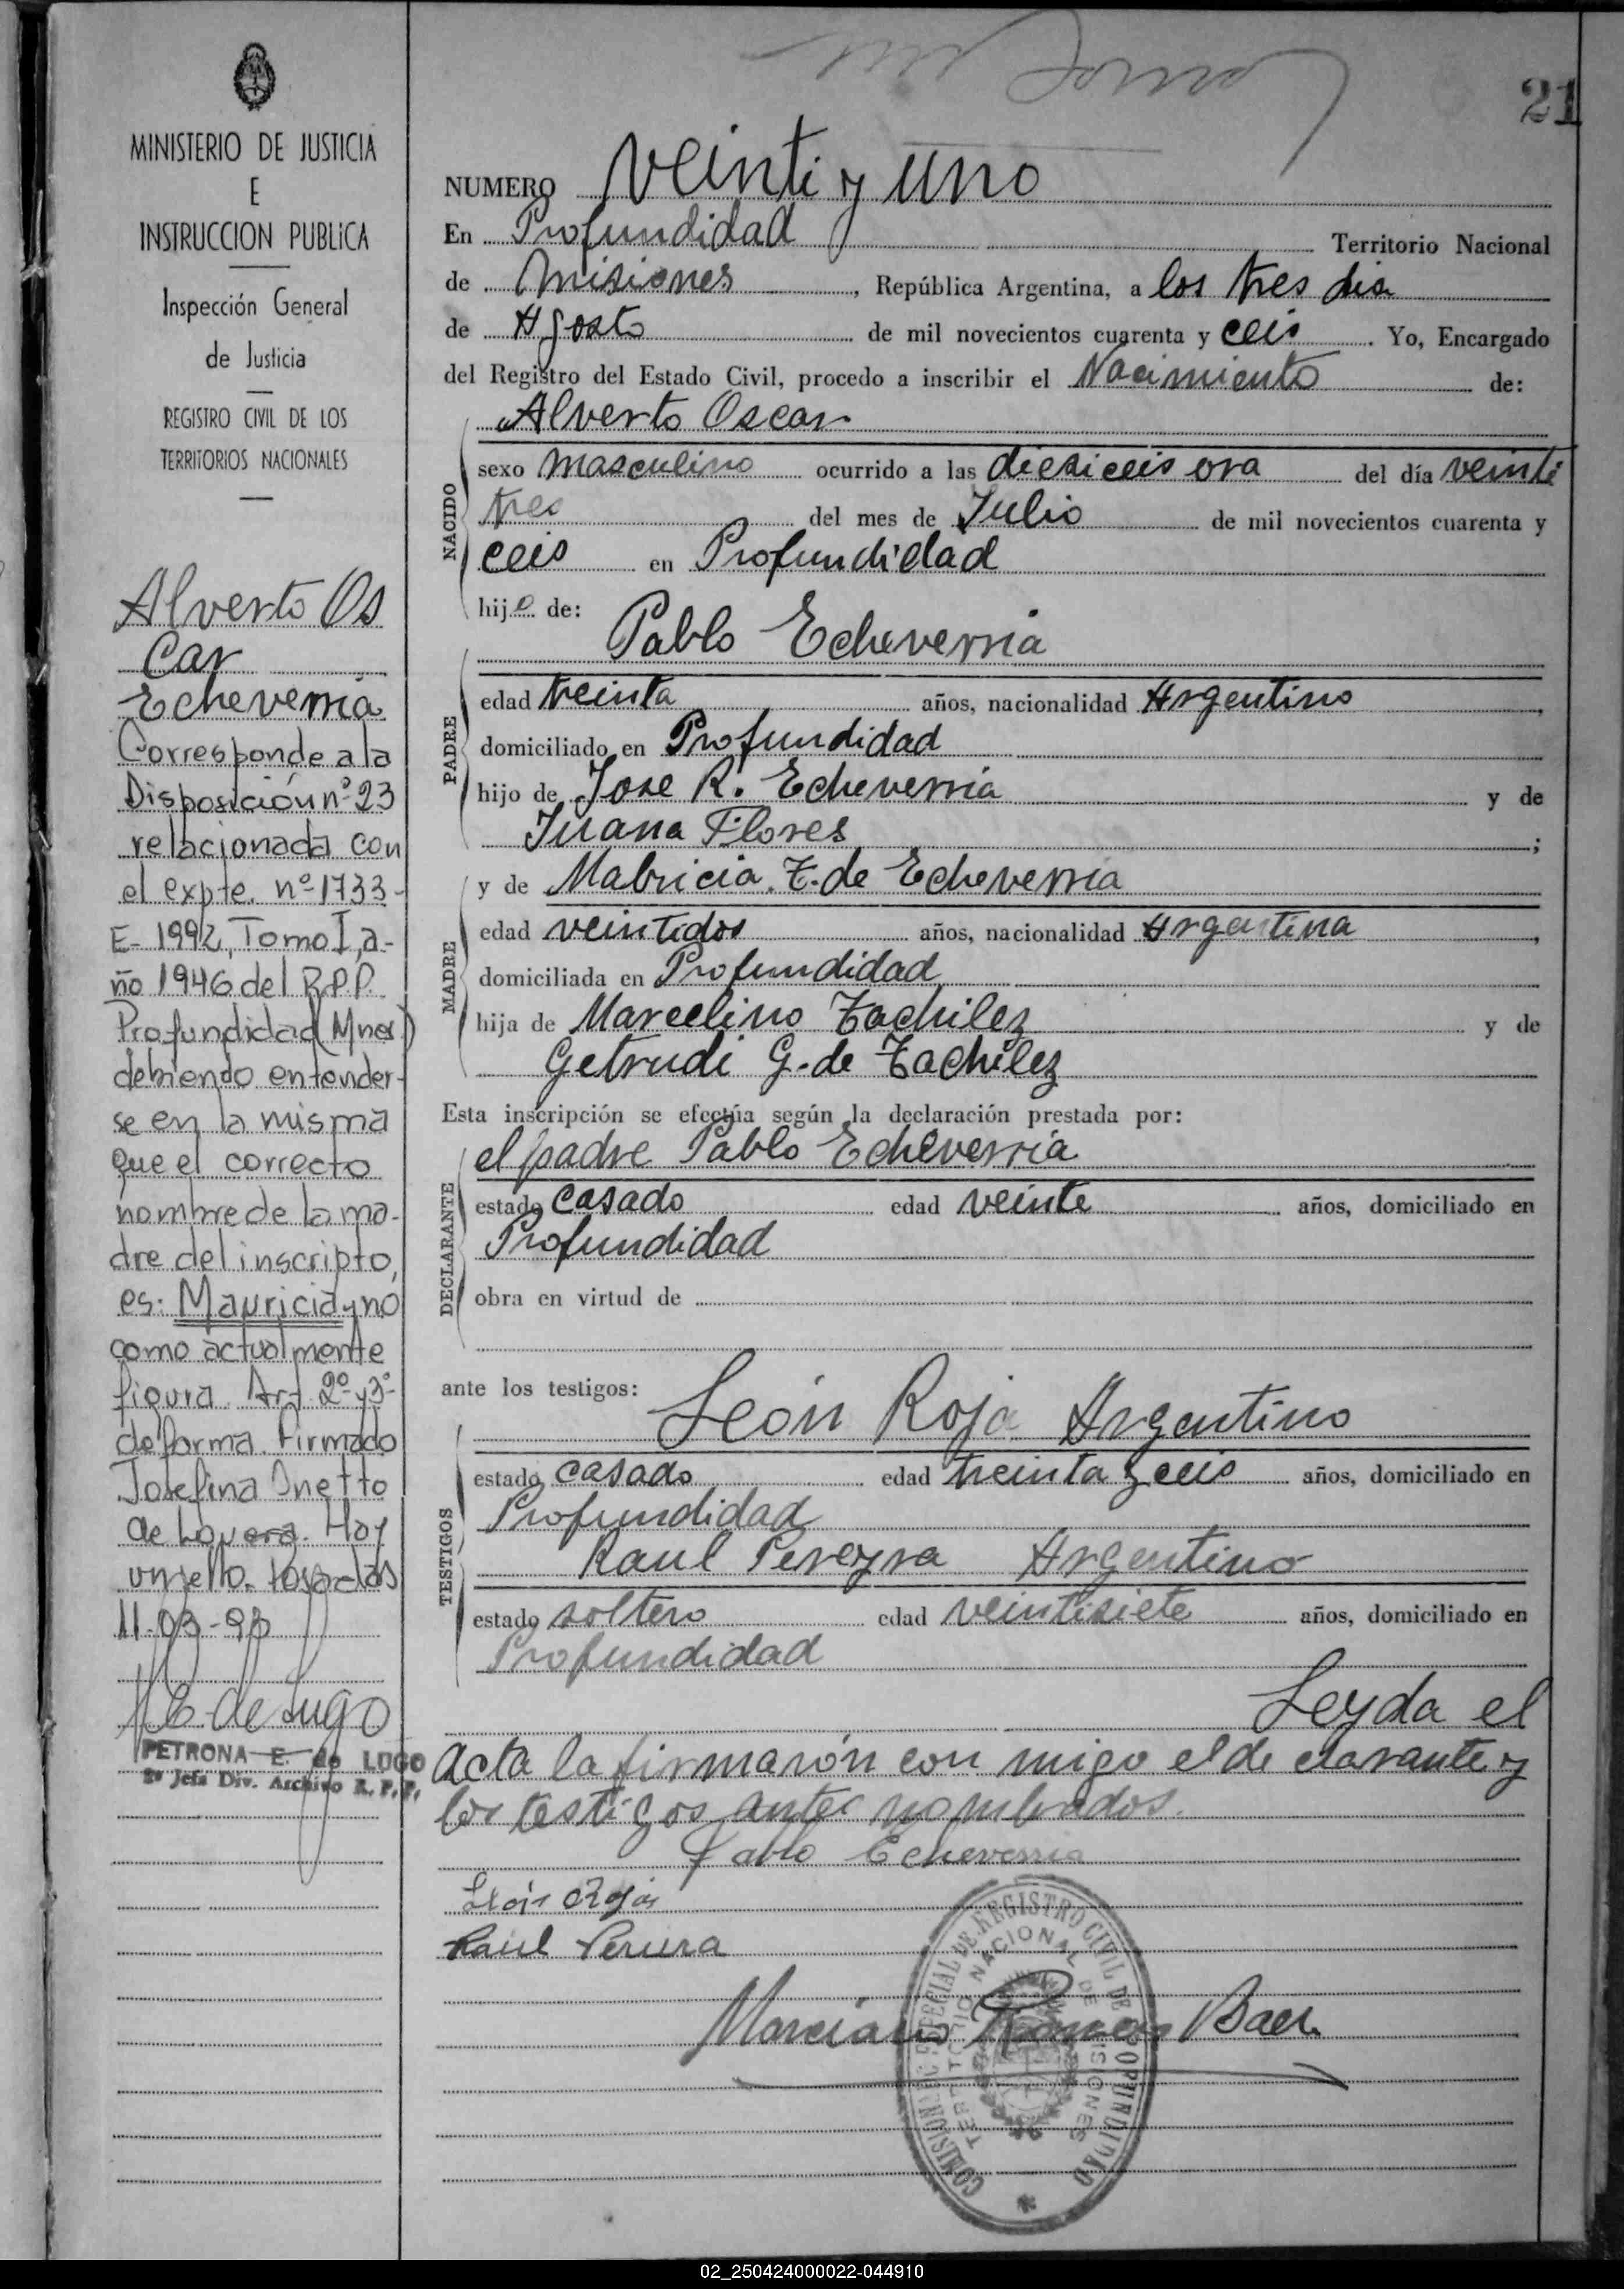 21
MINISTERIO DE JUSTICIA
E
INSTRUCCION PUBLICA
Inspección General
de Justicia
REGISTRO CIVIL DE LOS
TERRITORIOS NACIONALES
Alverto Os
Car
Echeverria
Corresponde a la
Disposición nº 23
relacionada con
el expte. nº 1733-
E- 1992, Tomo I, a-
ño 1946 del R.P.P.
Profundidad (Mnes)
debiendo entender-
se en la misma
que el correcto
nombre de la ma-
dre del inscripto,
es: Mauricia y no
como actualmente
figura. Art. 2º y 3º
de forma. Firmado
Josefina Onetto
de Lovera. Hay
un sello. Posadas
11-03-93
E. de Lugo
PETRONA E. de LUGO
2ª Jefa Div. Archivo R.P.P.
NUMERO veinti y uno
En Profundidad Territorio Nacional
de Misiones, República Argentina, a los tres dia
de Agosto de mil novecientos cuarenta y ceis. Yo, Encargado
del Registro del Estado Civil, procedo a inscribir el Nacimiento de:
NACIDO
Alverto Oscar
sexo masculino ocurrido a las diesiceis ora del día veinti
tres del mes de Julio de mil novecientos cuarenta y
ceis en Profundidad
hijo de:
Pablo Echeverria
PADRE
edad treinta años, nacionalidad Argentino,
domiciliado en Profundidad
hijo de Jose R. Echeverria y de
Juana Flores;
MADRE
y de Mabricia. Z. de Echeverria
edad veintidos años, nacionalidad Argentina,
domiciliada en Profundidad
hija de Marcelino Zachilez y de
Getrudi G. de Zachilez
Esta inscripción se efectúa según la declaración prestada por:
DECLARANTE
el padre Pablo Echeverria
estado casado edad veinte años, domiciliado en
Profundidad
obra en virtud de
ante los testigos:
TESTIGOS
León Roja Argentino
estado casado edad treinta y ceis años, domiciliado en
Profundidad
Raul Pereyra Argentino
estado soltero edad veintisiete años, domiciliado en
Profundidad
Leyda el
acta la firmarón con migo el de clarante y
los testigos antes nombrados.
Pablo Echeverria
León Rojas
Raul Perura
Marciano Roman Baez
COMISION ESPECIAL DE REGISTRO CIVIL DE PROFUNDIDAD
TERRITORIO NACIONAL DE MISIONES
02_250424000022-044910